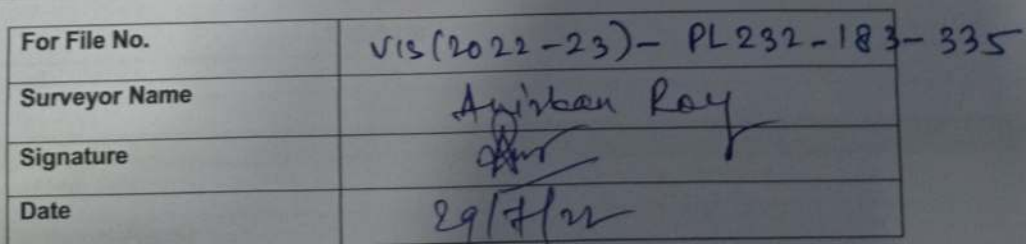 For File No. VIS(2022-23)- PL232-183-335
Surveyor Name Anirban Roy
Signature
Date 29/7/22